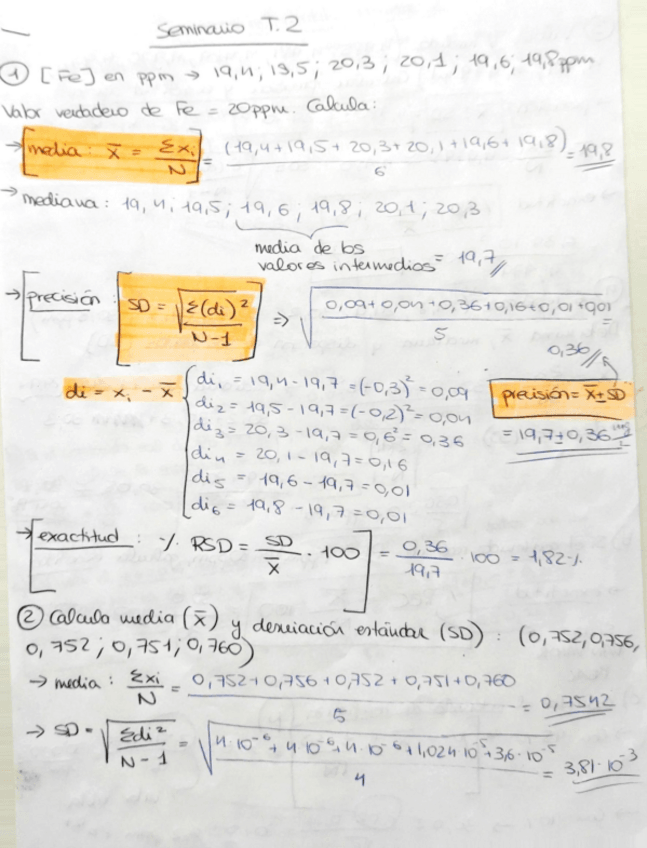 Seminario T.2
① [Fe] en ppm → 19,4; 19,5; 20,3; 20,1; 19,6; 19,8 ppm
Valor verdadero de Fe = 20ppm. Calcula:
→ media: x̄ = Σxi/N = (19,4+19,5+20,3+20,1+19,6+19,8)/6 = 19,8
→ mediana: 19,4; 19,5; 19,6; 19,8; 20,1; 20,3
media de los
valores intermedios = 19,7
→ precisión: SD = √(Σ(di)²/N-1) ⇒ √(0,09+0,04+0,36+0,16+0,01+0,01/5) =
0,36
di = xi - x̄
di₁ = 19,4 - 19,7 = (-0,3)² = 0,09
di₂ = 19,5 - 19,7 = (-0,2)² = 0,04
di₃ = 20,3 - 19,7 = 0,6² = 0,36
di₄ = 20,1 - 19,7 = 0,16
di₅ = 19,6 - 19,7 = 0,01
di₆ = 19,8 - 19,7 = 0,01
precisión = x̄ ± SD
= 19,7 ± 0,36
→ exactitud: % RSD = SD/x̄ · 100 = 0,36/19,7 · 100 = 1,82%
② Calcula media (x̄) y desviación estándar (SD): (0,752, 0,756,
0,752; 0,751; 0,760)
→ media: Σxi/N = 0,752+0,756+0,752+0,751+0,760/5 = 0,7542
→ SD = √(Σdi²/N-1) = √(4·10⁻⁶+4·10⁻⁶+4·10⁻⁶+1,024·10⁻⁵+3,6·10⁻⁵/4) = 3,81·10⁻³